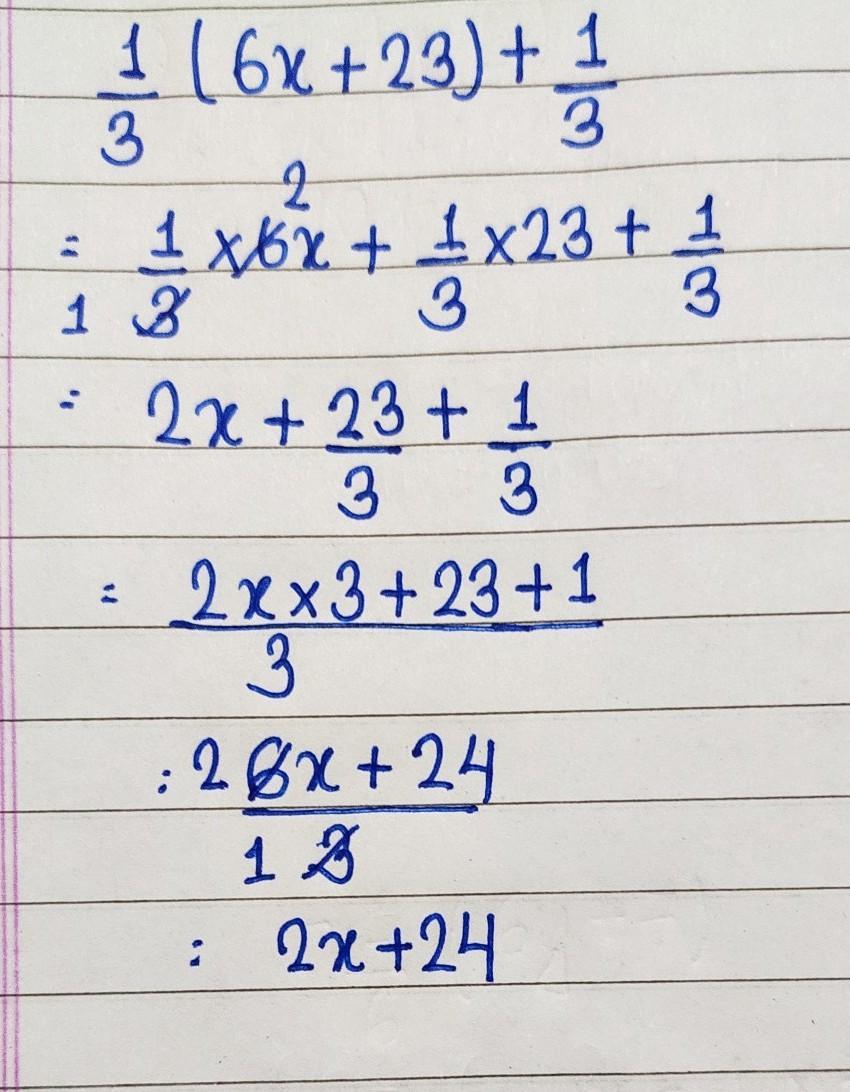 1/3 (6x + 23) + 1/3
= 1/3 × 6x 2 + 1/3 × 23 + 1/3
1
= 2x + 23/3 + 1/3
= 2x × 3 + 23 + 1
3
: 2 6x + 24
1 3
: 2x + 24